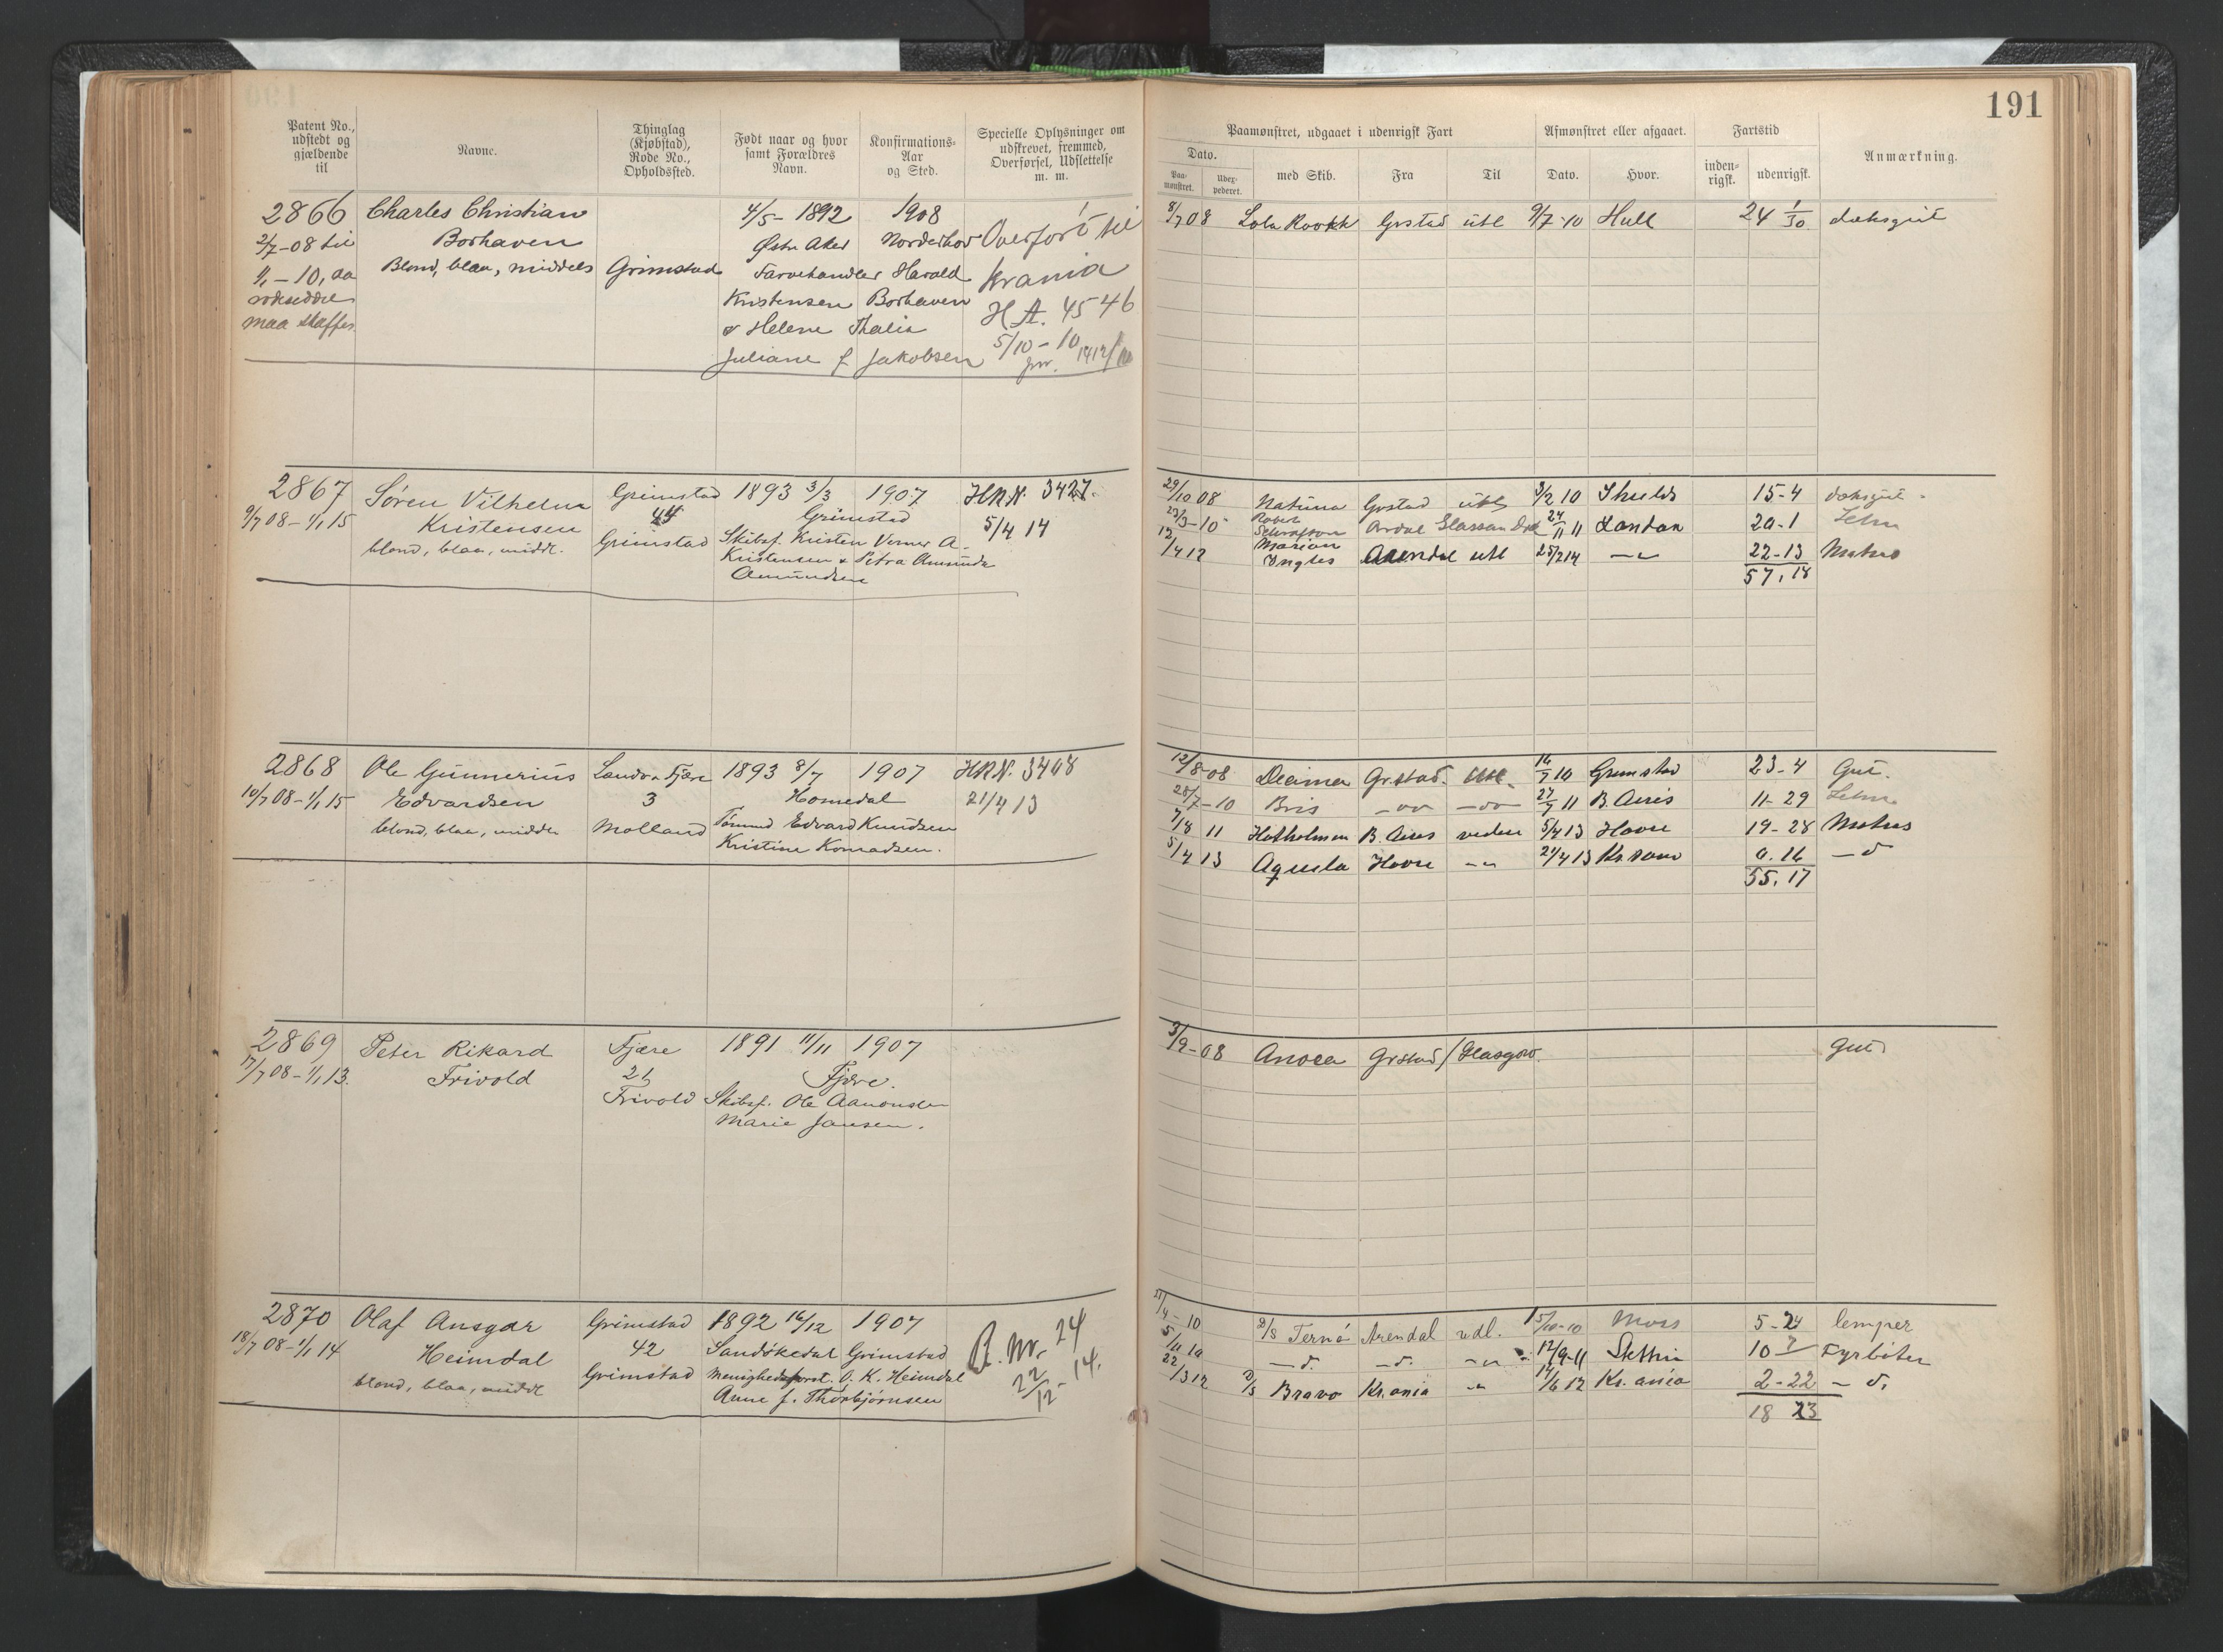 191
Patent No., udstedt og gjældende til
Navne.
Thinglag (Kjøbstad), Rode No., Opholdssted.
Født naar og hvor samt Forældres Navn.
Konfirmations-Aar og Sted.
Specielle Oplysninger om udskrevet, fremmed, Overførsel, Udslettelse m. m.
Paamønstret, udgaaet i udenrigsk Fart
Afmønstret eller afgaaet.
Fartstid
Anmærkning.
Dato.
Paamønstret.
Udexpederet.
med Skib.
Fra
Til
Dato.
Hvor.
indenrigsk.
udenrigsk.
2866 Charles Christian 4/5- 1892 1908 Overført til
2/7-08 til Borhaven Østre Aker Norderhov
1/1-10, da Blond, blaa, middels Grimstad Farvehandler Harald Krania
Kristensen Borhaven H A. 4546
maa skaffes & Helene Thalia 5/10-10
Juliane f. Jakobsen
8/7 08 Grstad utl 9/7-10 Hull 24 1/30 dæksgut
2867 Søren Vilhelm Grimstad 1893 3/3 1907 HRN. 3427.
9/7 08-1/1 15 Kristensen 44 Grimstad 5/4 14
blond, blaa, middl. Grimstad Skibsf. Kristen Verner A.
Kristensen & Petra Amunda
Amundsen
29/10 08 Grstad utl 3/2 10 Shields 15-4 dæksgut
23/3-10 24/11 11 London 20-1
12/4 12 Marion Ingles Arendal utl 25/2 14 22-13 Matros
57, 18
2868 Ole Gunnerius Landv. Fjære 1893 8/7 1907 HRN. 3408
10/7 08-1/1 15 Edvardsen 3 Homedal 21/4 13
blond, blaa, middl. Molland Tømmd Edvard Knudsen
Kristine Konradsen.
12/8-08 Grstad. utl. 16/7 10 Grimstad 23-4 Gut.
28/7-10 Bris 27/7 11 B. Aires 11-29
7/8 11 Hatholmen B. Aires 5/4 13 Havre 19-28 Matros
5/4 13 Aquila Havre 21/4 13 Kr.sand 0.16 - d
55, 17
2869 Peter Rikard Fjære 1891 11/11 1907
17/7 08-1/1 13. Frivold 21 Fjære.
Frivold Skibsf. Ole Aanonsen
Marie Jansen.
3/9-08 Grstad / Glasgow. Gut
2870 Olaf Ansgar Grimstad 1892 16/12 1907 B. Nr. 24
18/7 08-1/1 14 Heimdal 42 Sandökedal Grimstad 22/12-14.
blond, blaa, middl Grimstad Menighedsforst. O. K. Heimdal
Anne f. Thorbjørnsen
D/S Ternö Arendal udl. 15/10-10 Moss 5-24 lemper
5/11 10 - d. - d. 12/9-11 Stettin 10 7 Fyrböter
22/3 12 D/S Bravo Kr.ania 14/6 12 Kr.ania 2-22 - d.
18 23